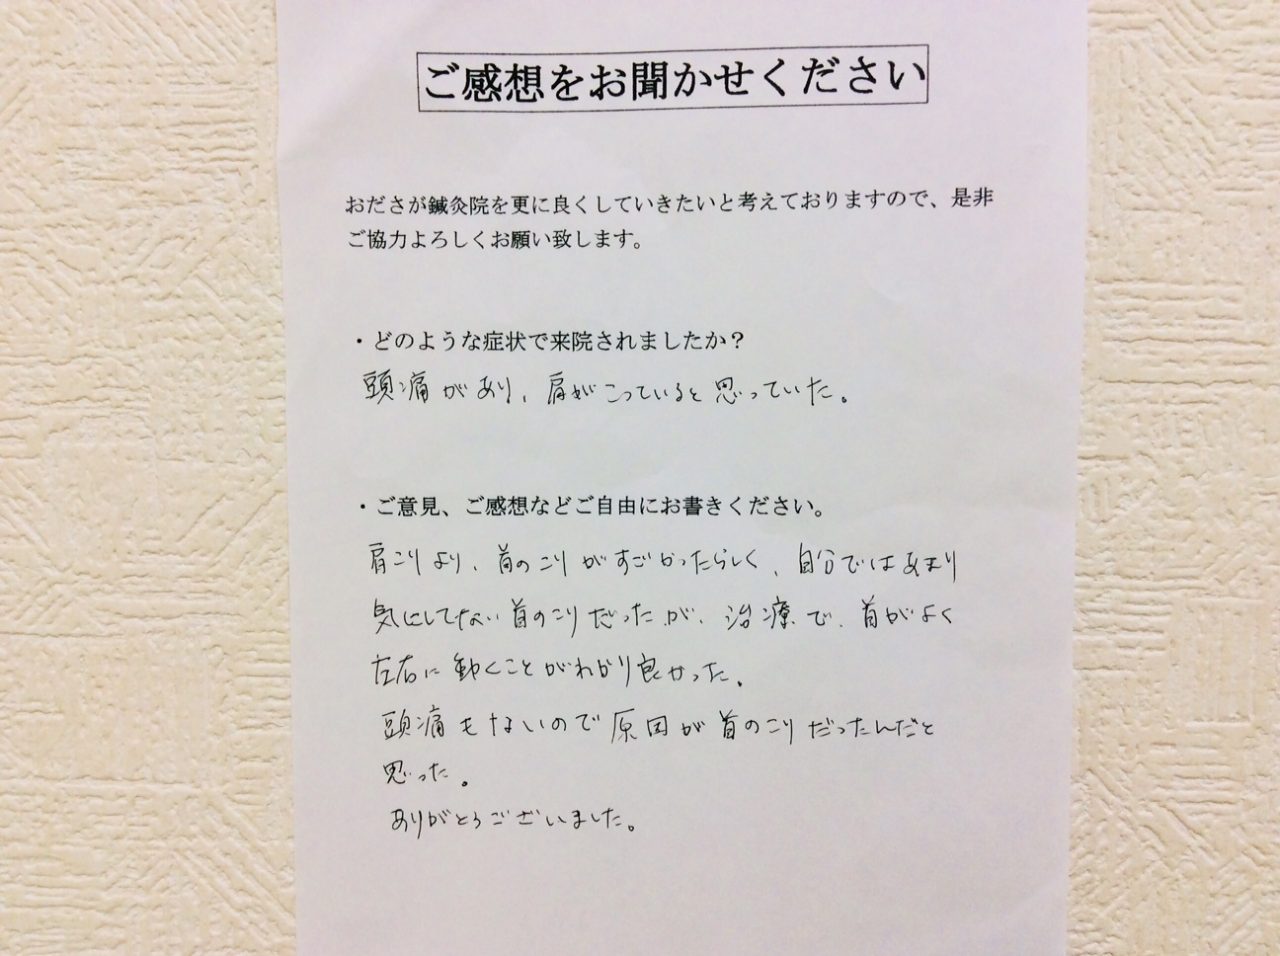 ご感想をお聞かせください
おださが鍼灸院を更に良くしていきたいと考えておりますので、是非
ご協力よろしくお願い致します。
・どのような症状で来院されましたか？
頭痛があり、肩がこっていると思っていた。
・ご意見、ご感想などご自由にお書きください。
肩こりより、首のこりがすごかったらしく、自分ではあまり
気にしてない首のこりだったが、治療で、首がよく
左右に動くことがわかり良かった。
頭痛もないので原因が首のこりだったんだと
思った。
ありがとうございました。